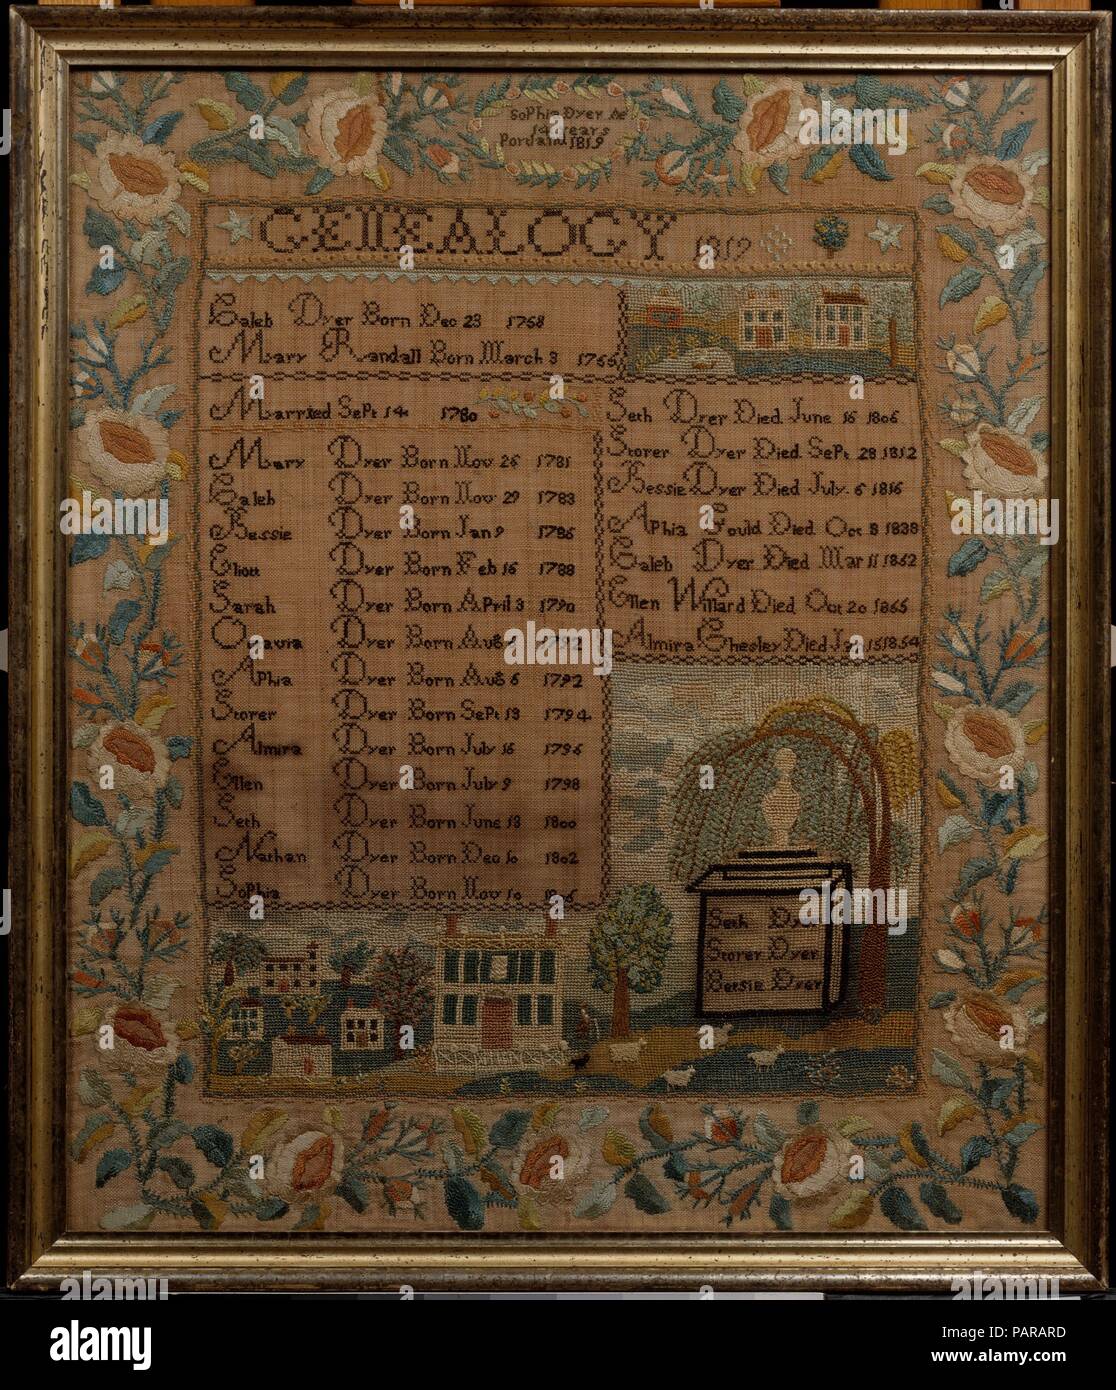 SoPhia Dyer Ae
14 years
Portland 1819
GENEALOGY 1819
Caleb Dyer Born Dec 23 1758
Mary Randall Born March 3 1766
Married SePt 14 1780
Mary Dyer Born Nov 26 1781
Caleb Dyer Born Nov 29 1783
Bessie Dyer Born Jan 9 1786
Eliott Dyer Born Feb 16 1788
Sarah Dyer Born APril 3 1790
Octavia Dyer Born Aug 1792
APhia Dyer Born Aug 6 1792
Storer Dyer Born SePt 13 1794
Almira Dyer Born July 16 1796
Ellen Dyer Born July 9 1798
Seth Dyer Born June 18 1800
Nathan Dyer Born Dec 10 1802
SoPhia Dyer Born Nov 10
Seth Dyer Died June 16 1806
Storer Dyer Died SePt 28 1812
Bessie Dyer Died July 6 1816
APhia Gould Died Oct 8 1838
Caleb Dyer Died Mar 11 1852
Ellen Willard Died Oct 20 1865
Almira Chesley Died 1854
Seth Dyer
Storer Dyer
Betsie Dyer
alamy
alamy
Image ID: PARARD
www.alamy.com